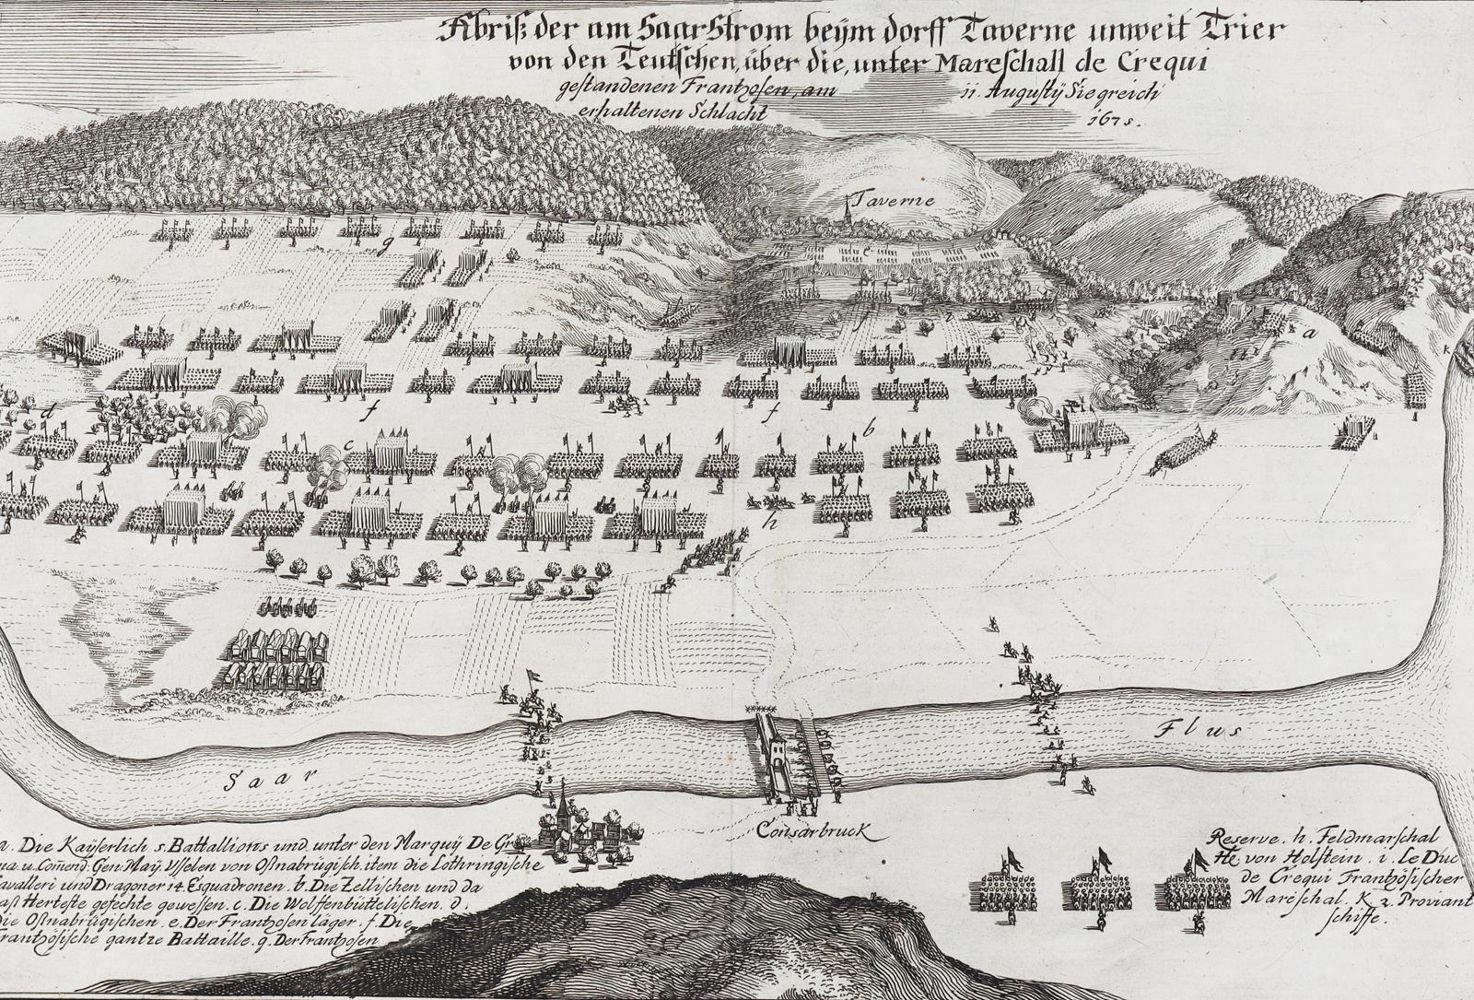 Abriß der am SaarStrom beÿm dorff Taverne unweit Trier
von den Teutschen, über die, unter Mareschall de Crequi
gestandenen Frantzosen, am 11. Augustÿ Siegreich
erhaltenen Schlacht 1675.
Taverne
g
e
f
i
a
k
d
f
f
b
c
h
Saar
Flus
Consarbruck
a. Die Kaÿserlich 5. Battallions und unter den Marquÿ De Gra
na u. Com̃end. Gen: Maÿ. Vsselen von Osnabrügisch. item die Lothringische
avalleri und Dragoner 14. Esquadronen. b. Die Zellischen und da
aß Herteste gefechte gewessen. c. Die Wolffenbüttelischen. d.
Die Osnabrügischen. e. Der Frantzosen läger. f. Die
Frantzösische gantze Battaille. g. Der Frantzosen
Reserve. h. Feldmarschal
He von Holstein. i. Le Duc
de Crequi Frantzösischer
Mareschal. K 2. Proviant
schiffe.